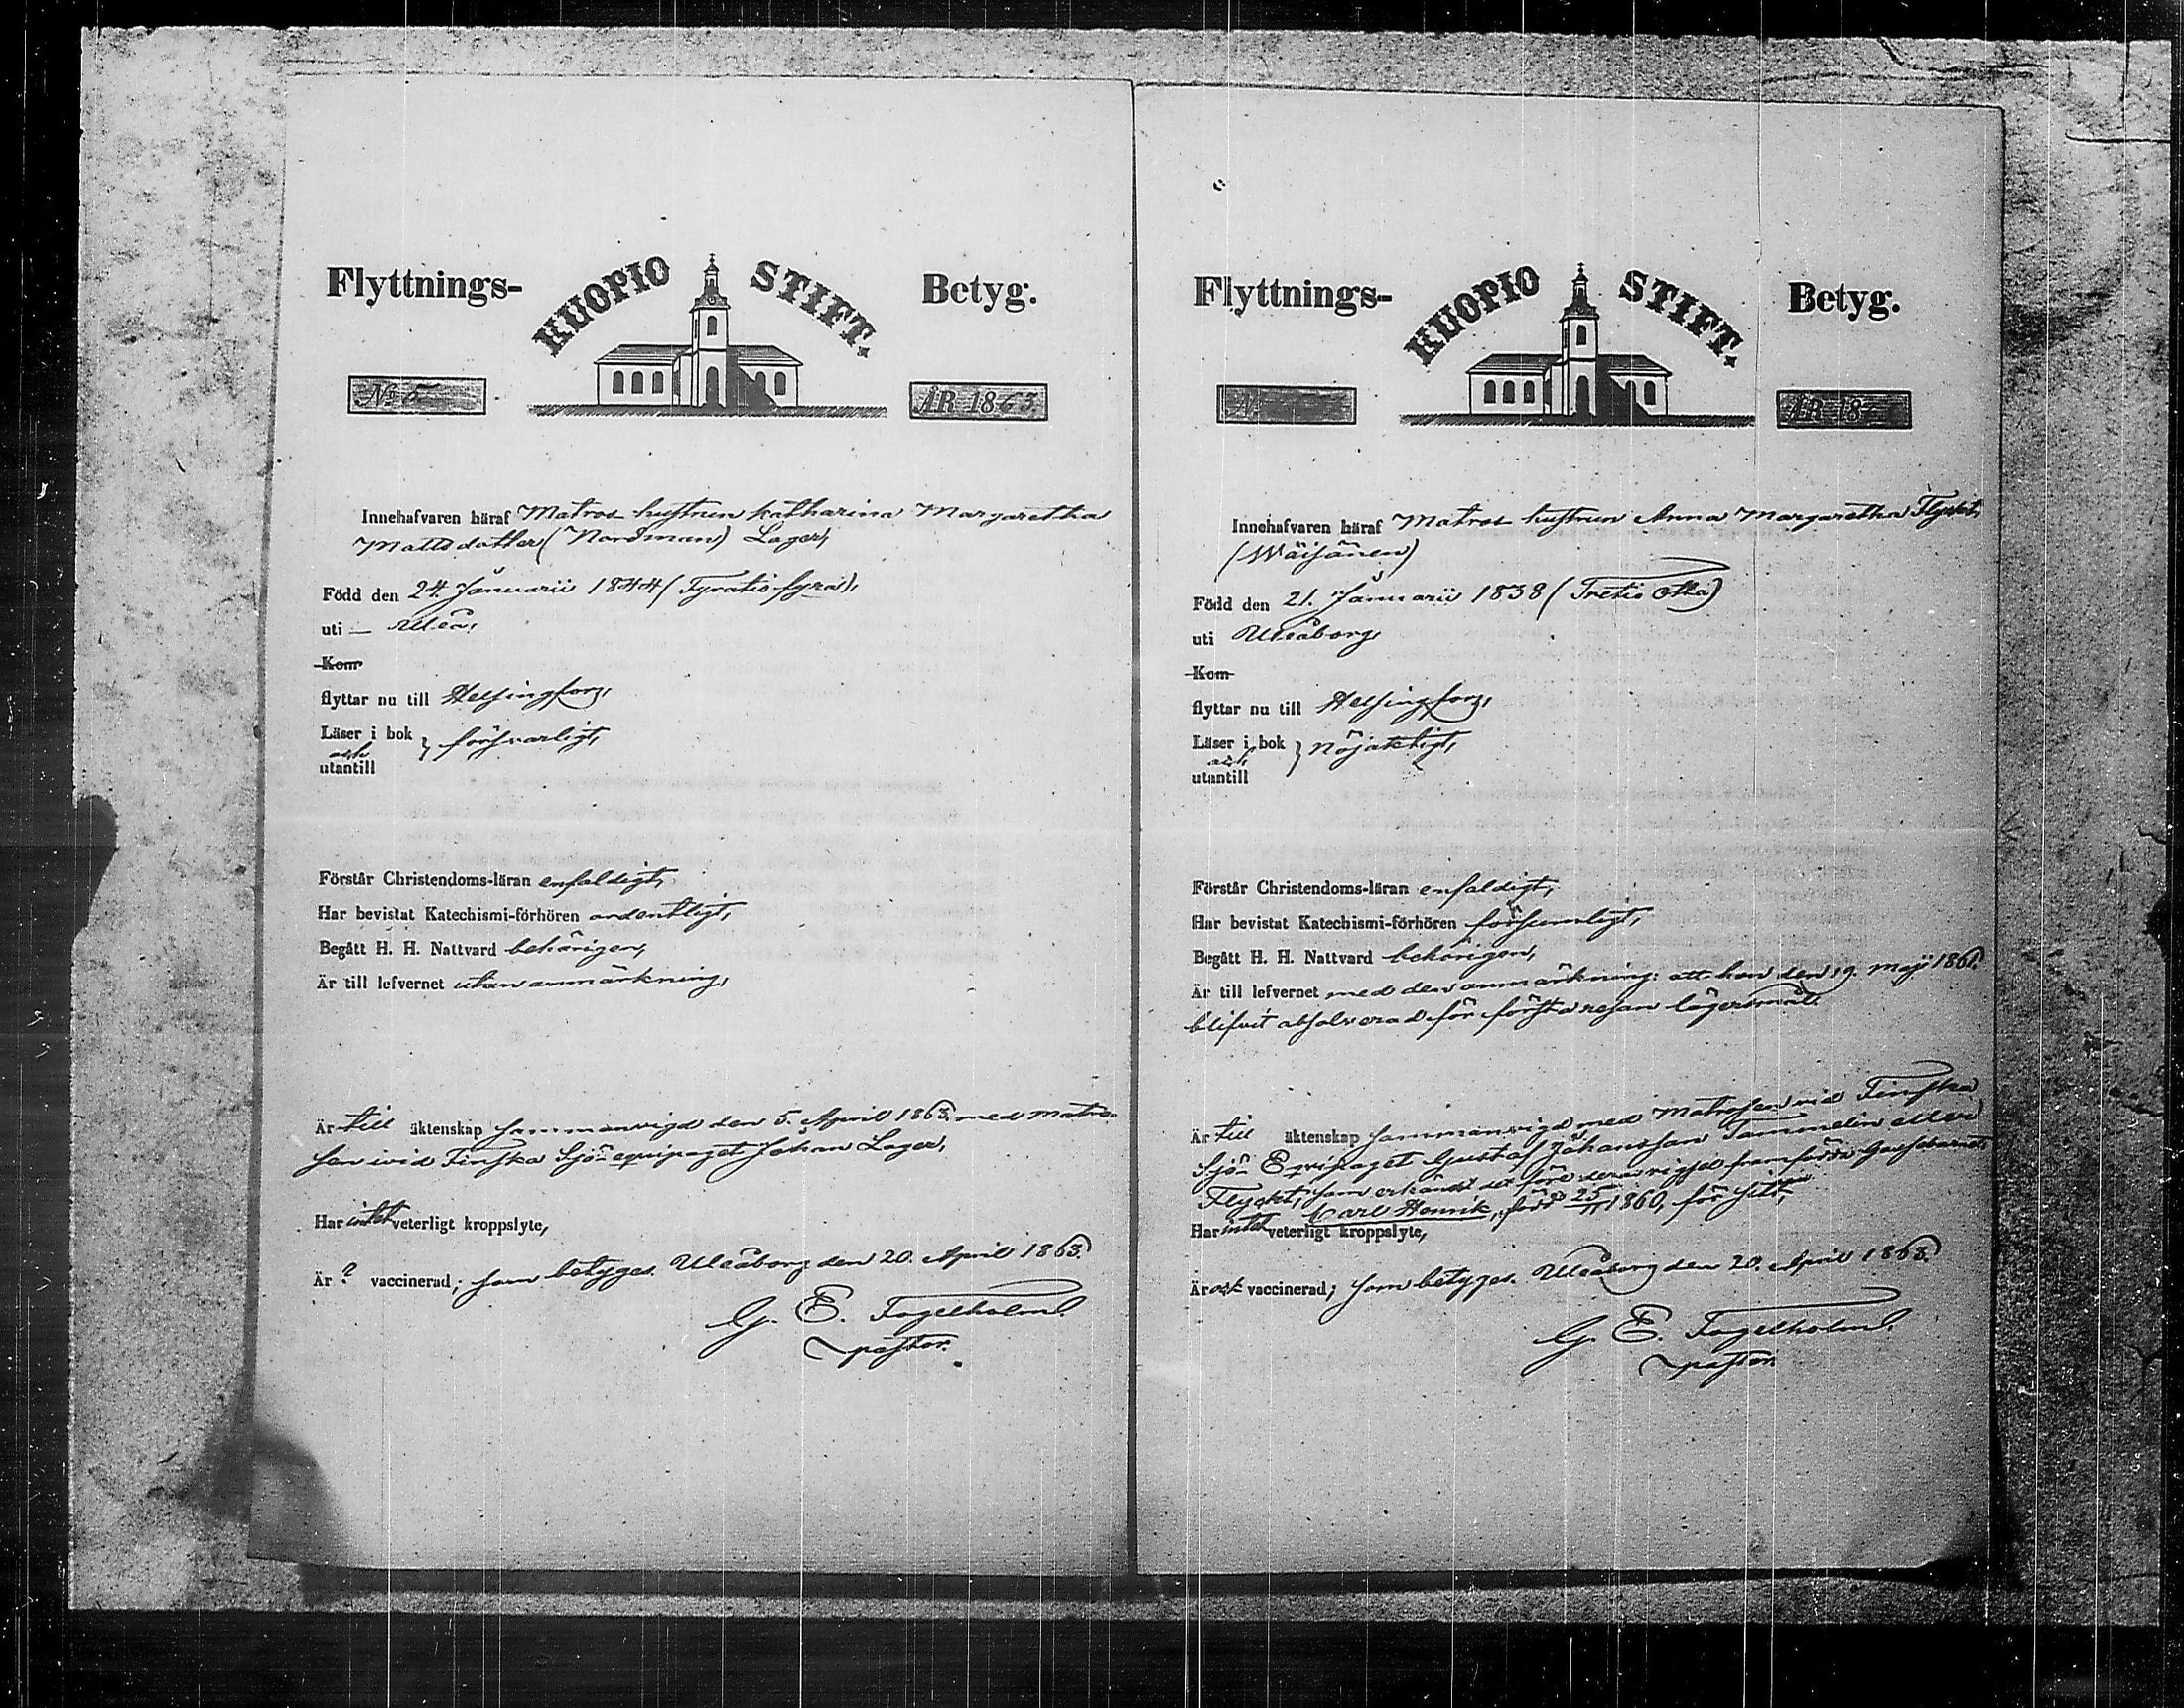 Flyttnings- KUOPIO STIFT. Betyg.
No 5 ÅR 1863.
Innehafvaren häraf Matros hustrun Katharina Margaretha
Mattsdotter (Nordman) Lager,
Född den 24. Januarii 1844 (Fyratio fyra),
uti —
Kom
flyttar nu till Helsingfors,
Läser i bok } försvarligt,
och
utantill
Förstår Christendoms-läran enfaldigt,
Har bevistat Katechismi-förhören ordentligt,
Begått H. H. Nattvard behörigen,
Är till lefvernet utan anmärkning,
Är till äktenskap sammanvigd den 5. April 1863. med matro-
sen wid Finska Sjö-equipaget Johan Lager,
Har intet veterligt kroppslyte,
Är ? vaccinerad; som betyges. Uleåborg den 20. April 1863.
G. E. Fogelholm.
pastor.
Flyttnings- KUOPIO STIFT. Betyg.
N ÅR 18
Innehafvaren häraf Matros hustrun Anna Margaretha Flyckt,
(Wäisänen)
Född den 21. Januarii 1838 (Tretio otta)
uti Uleåborg,
Kom
flyttar nu till Helsingfors,
Läser i bok } nöjaktigt,
och
utantill
Förstår Christendoms-läran enfaldigt,
Har bevistat Katechismi-förhören försumligt,
Begått H. H. Nattvard behörigen,
Är till lefvernet med den anmärkning: att hon den 19. Maji 1861.
blifvit absolverad för första resan lägersmål.
Är till äktenskap sammanvigd med Matrosen vid Finska
Sjö-Equipaget Gustaf Johansson Tammelin eller
Flyckt, som erkändt det före deras vigsel framfödda
Carl Henrik, född 25/11 1860, för sitt,
Har intet veterligt kroppslyte,
Är ock vaccinerad; som betyges. Uleåborg den 20. April 1863.
G. E. Fogelholm.
pastor.